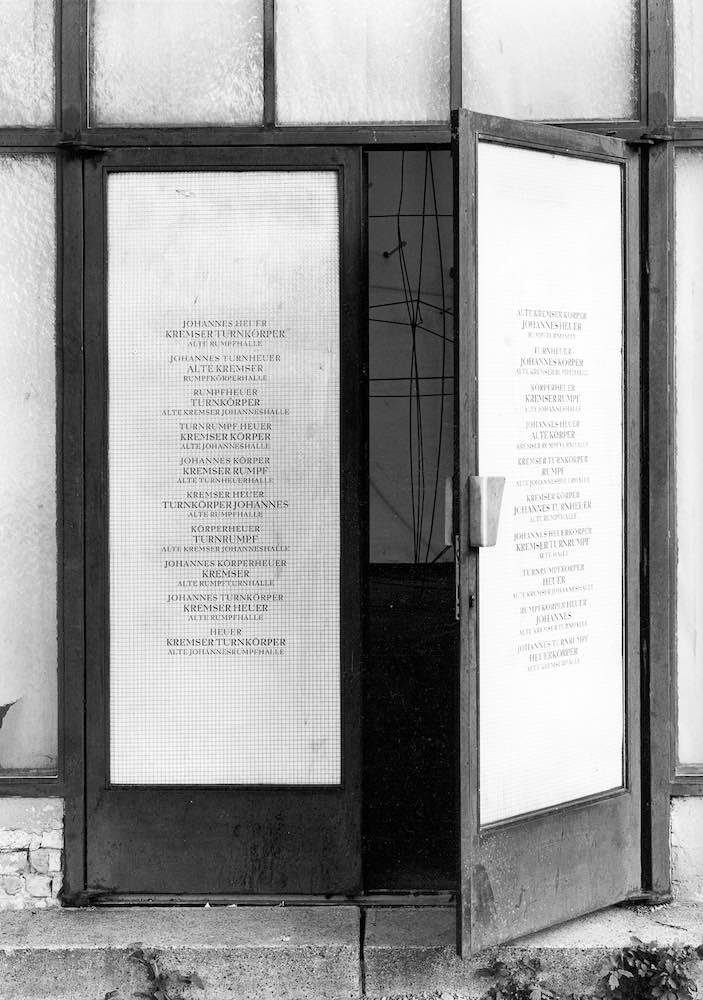 JOHANNES HEUER
KREMSER TURNKÖRPER
ALTE RUMPFHALLE
JOHANNES TURNHEUER
ALTE KREMSER
RUMPFKÖRPERHALLE
RUMPFHEUER
TURNKÖRPER
ALTE KREMSER JOHANNESHALLE
TURNRUMPF HEUER
KREMSER KÖRPER
ALTE JOHANNESHALLE
JOHANNES KÖRPER
KREMSER RUMPF
ALTE TURNHEUERHALLE
KREMSER HEUER
TURNKÖRPER JOHANNES
ALTE RUMPFHALLE
KÖRPERHEUER
TURNRUMPF
ALTE KREMSER JOHANNESHALLE
JOHANNES KÖRPERHEUER
KREMSER
ALTE RUMPFTURNHALLE
JOHANNES TURNKÖRPER
KREMSER HEUER
ALTE RUMPFHALLE
HEUER
KREMSER TURNKÖRPER
ALTE JOHANNESRUMPFHALLE
ALTE KREMSER KÖRPER
JOHANNES HEUER
RUMPFTURNHALLE
TURNHEUER
JOHANNES KÖRPER
ALTE KREMSER RUMPFHALLE
KÖRPERHEUER
KREMSER RUMPF
ALTE JOHANNESTURNHALLE
JOHANNES HEUER
ALTE KÖRPER
KREMSER RUMPFTURNHALLE
KREMSER TURNKÖRPER
RUMPF
ALTE JOHANNESHEUERHALLE
KREMSER KÖRPER
JOHANNES TURNHEUER
ALTE RUMPFHALLE
JOHANNES HEUERKÖRPER
KREMSER TURNRUMPF
ALTE HALLE
TURNRUMPFKÖRPER
HEUER
ALTE KREMSER JOHANNESHALLE
RUMPFKÖRPER HEUER
JOHANNES
ALTE KREMSER TURNHALLE
JOHANNES TURNRUMPF
HEUERKÖRPER
ALTE KREMSERHALLE